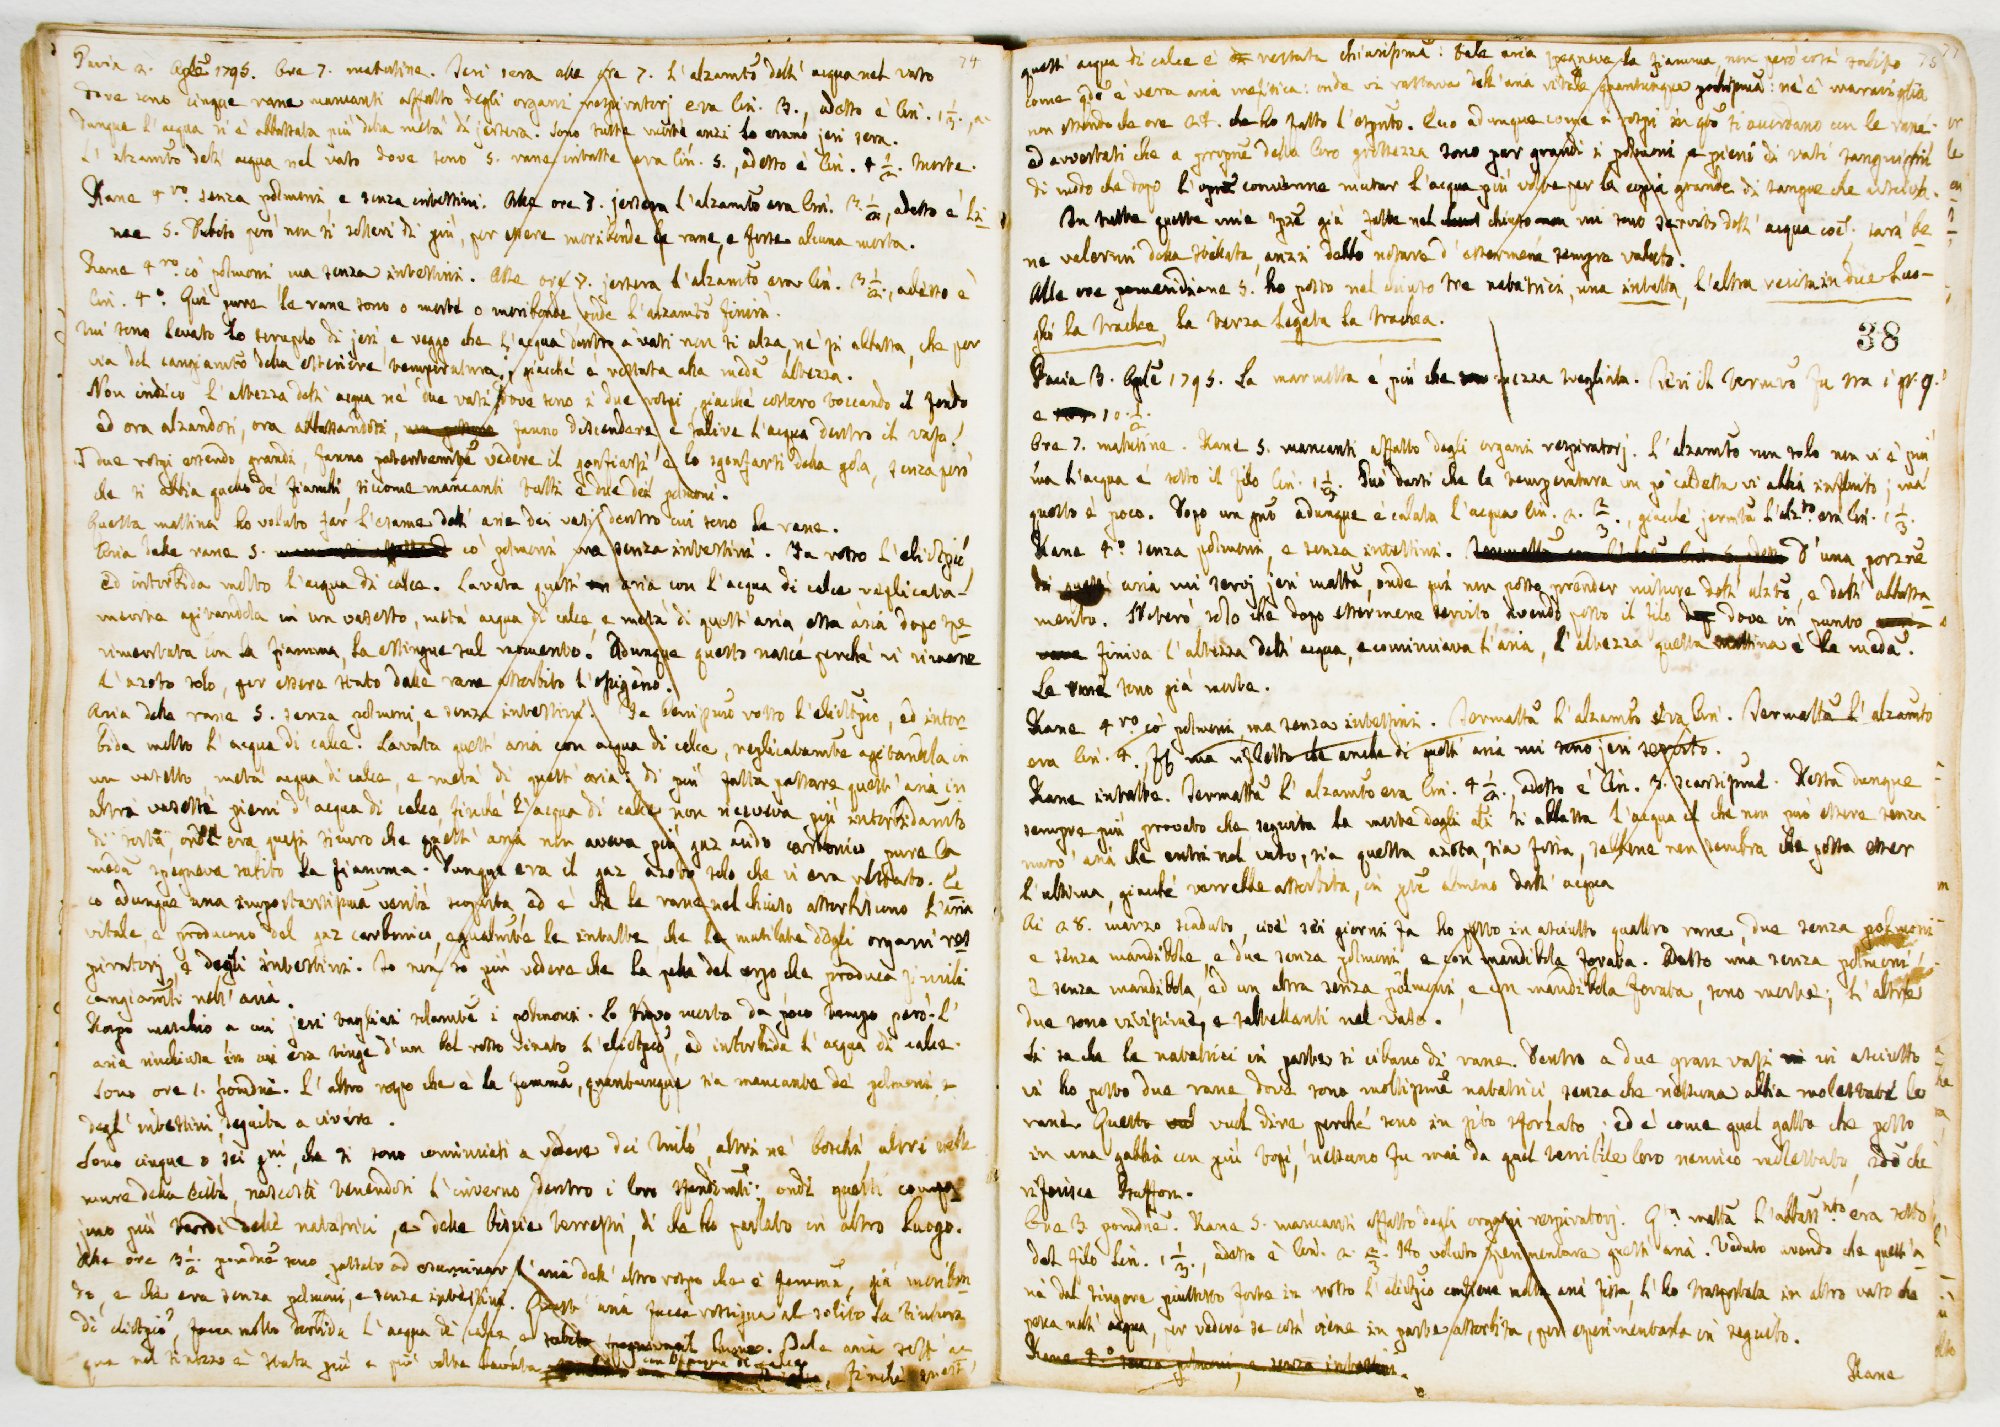 Pavia 2. Aple 1795. Ore 7. matutine. Jeri sera alle ore 7. l'alzamto dell' acqua nel vaso
dove sono cinque rane mancanti affatto degli organi respiratorj era lin. 3., adesso è lin. 1 1/3.
Dunque l'acqua si è abbassata più della metà di jersera. Sono tutte morte anzi lo erano jeri sera.
L'alzamto dell' acqua nel vaso dove sono 5. rane intatte era lin. 5., adesso è lin. 4 1/2. Morte.
Rane 4ro senza polmoni e senza intestini. Alle ore 7. jersera l'alzamto era lin. 3 1/2, adesso è li
nee 5. Subito però non si solleví di più, per essere moribonde le rane, e forse alcuna morta.
Rane 4ro co' polmoni, ma senza intestini. Alle ore 7. jersera l'alzamto era lin. 3 1/2, adesso è
lin. 4. Qui pure le rane sono o morte o moribonde onde l'alzamto finirà.
Mi sono levato lo scrupolo di jeri, e veggo che l'acqua dentro a' vasi non si alza, nè si abbassa, che per
via del cangiamto della esteriore temperatura, giacchè è restata alla meda altezza.
Non indico l'altezza dell' acqua nè due vasi dove sono i due rospi, giacchè costoro toccando il fondo
ed ora alzandosi, ora abbassandosi, fanno discendere e salire l'acqua dentro il vaso.
I due rospi essendo grandi, fanno vedere il gonfiarsi e lo sgonfiarsi della gola, senza però
che si abbia quello de' fianchi, siccome mancanti tutti e due dei polmoni.
Questa mattina ho voluto far l'esame dell' aria dei vasi dentro cui sono le rane.
Aria delle rane 5. co' polmoni, ma senza intestini. Fa rosso l'eliotropio,
ed intorbida molto l'acqua di calce. Lavata quest' aria con l'acqua di calce replicata-
mente agitandola in un vasetto, metà acqua di calce e metà di quest'aria, essa aria dopo spe
rimentata con la fiamma, la estingue sul momento. Adunque questo nasce perchè vi rimane
l'azoto solo, per essere stato dalle rane assorbito l'ossigeno.
Aria delle rane 5. senza polmoni, e senza intestini. Fa rosso l'eliotropio, ed intor-
bida molto l'acqua di calce. Lavata quest' aria con acqua di calce, replicatamte agitandola in
un vasetto metà acqua di calce, e metà di quest' aria: di più fatta passare quest' aria in
altri vasetti pieni d'acqua di calce, finchè l'acqua di calce non riceveva più intorbidamto
di sorta, onde era quasi sicuro che quest' aria non aveva più gaz acido carbonico, pure la
meda spegneva subito la fiamma. Dunque era il gaz azoto solo che vi era restato. Ec
co adunque una importantissima verità scoperta, ed è che le rane nel chiuso assorbiscono l'aria
vitale, e producono del gaz carbonico, egualmte le intatte che le mutilate degli organi res
piratorj, e degli intestini. Io non so più vedere che la pelle del corpo che produca simili
cangiamti nell' aria.
Rospo maschio a cui jeri tagliai solamte i polmoni. Lo trovo morto da poco tempo però. L'
aria rinchiusa in cui era tinge d'un bel rosso vinato l'eliotropio, ed intorbida l'acqua di calce.
Sono ore 1. pomdne. L'altro rospo che è la femma, quantunque sia mancante de' polmoni e
degl' intestini, seguita a vivere.
Sono cinque o sei gni, che si sono cominciati a vedere dei Miló, altri nè boschi altri nelle
mure della Città, nascosti tenendosi l'inverno dentro i loro
più tardi delle natatrici, e delle biscie terrestri, di che ho parlato in altro luogo.
Alle ore 3 1/2 pomdne sono passato ad esaminar l'aria dell' altro rospo che è femma, già moribon
do, e che era senza polmoni, e senza intestini. Quest' aria facea rossigna al solito la tintura
di eliotropio, facea molto torbida l'acqua di calce e subito spegneva il lume. Tale aria
que nel tinozzo è stata più e più volte lavata con l'acqua di calce, finchè quest'
74
quest' acqua di calce è restata chiarissima: Tale aria spegneva la fiamma, non però così subito
come qdo è vera aria mefitica: onde vi restava dell' aria vitale quantunque pochissima: nè è maraviglia
non essendo che ore 24. che ho fatto l'esperto. Ecco adunque come i rospi in qto si accordano con le rane.
ed avvertasi che a proporne della loro grossezza sono pur grandi i polmoni, e pieni di vasi sanguigni
di modo che dopo l'opne convenne mutar l'acqua più volte per la copia grande di sangue che usciva.
In tutte queste mie spze già fatte nel chiuso mi sono servito dell' acqua coe. sarà be
ne valermi della stillata, anzi debbo notare d'essermene sempre valuto.
Alle ore pomeridiane 5. ho posto nel chiuso tre natatrici, una intatta, l'altra recisa in due luo-
ghi la trachea, la terza legata la trachea.
38
75
Pavia 3. Aple 1795. La marmotta è più che mezza svegliata. Jeri il Termro fu tra i gr. 9.
e 10. 1/2.
Ore 7. matutine. Rane 5. mancanti affatto degli organi respiratorj. L'alzamto non solo non vi è più
ma l'acqua è sotto il filo lin. 1 1/3. Può darsi che la temperatura un po' caldetta vi abbia influito; ma
questo è poco. Dopo un gno adunque è calata l'acqua lin. 2. 2/3., giacchè jermatta l'alzto era lin. 1 1/3.
Rane 4o senza polmoni, e senza intestini. D'una porzne
di quest' aria mi servij jeri matta, onde qui non posso prender misure dell' alzto, e dell' abbassa-
mento. Noterò solo che dopo essermene servito avendo posto il filo dove in punto
finiva l'altezza dell' acqua, e cominciava l'aria, l'altezza questa mattina è la meda.
Le rane sono già morte.
Rane 4ro co' polmoni, ma senza intestini. Jermatta l'alzamto era lin. Jermatta l'alzamto
era lin. 4. ma rifletto che anche di quest' aria mi sono jeri servito.
Rane intatte. Jermatta l'alzamto era lin. 4 1/2., adesso è lin. 3. scarsissime. Resta dunque
sempre più provato che seguita la morte degli ati si abbassa l'acqua il che non può essere senza
nuov' aria che entri nel vaso, sia questa azota, sia fissa, sebbene non sembra che possa esser
l'ultima, giacchè verrebbe assorbita, in pte almeno dall' acqua
Ai 28. marzo scaduto, cioè sei giorni fa ho posto in asciutto quattro rane, due senza polmoni
e senza mandibola, e due senza polmoni e con mandibola forata. Adesso una senza polmoni,
e senza mandibola, ed un altra senza polmoni, e con mandibola forata, sono morte; l'altre
due sono vivissime, e saltellanti nel vaso.
Si sa che le natatrici in parte si cibano di rane. Dentro a due gran vasi in asciutto
vi ho posto due rane dove sono moltissime natatrici senza che nessuna abbia molestate le
rane. Questo vuol dire perchè sono in sito sforzato. ed è come quel gatto che posto
in una gabbia con più topi, nessuno fu mai da quel terribile loro nemico molestato, ciò che
riferisce Buffon.
Ore 3. pomdne. Rane 5. mancanti affatto degli organi respiratorj. Qta matta l'abbassnto era sotto
del filo lin. 1 1/3., adesso è lin. 2. 2/3. Ho voluto sperimentare quest' aria. Veduto avendo che quest' a
ria dal tingere piuttosto forte in rosso l'eliotropio contiene molta aria fissa, l'ho trasportata in altro vaso che
pesca nell' acqua, per vedere se così viene in parte assorbita, per esperimentarla in seguito.
Rane 4o senza polmoni, e senza intestini.
Rane